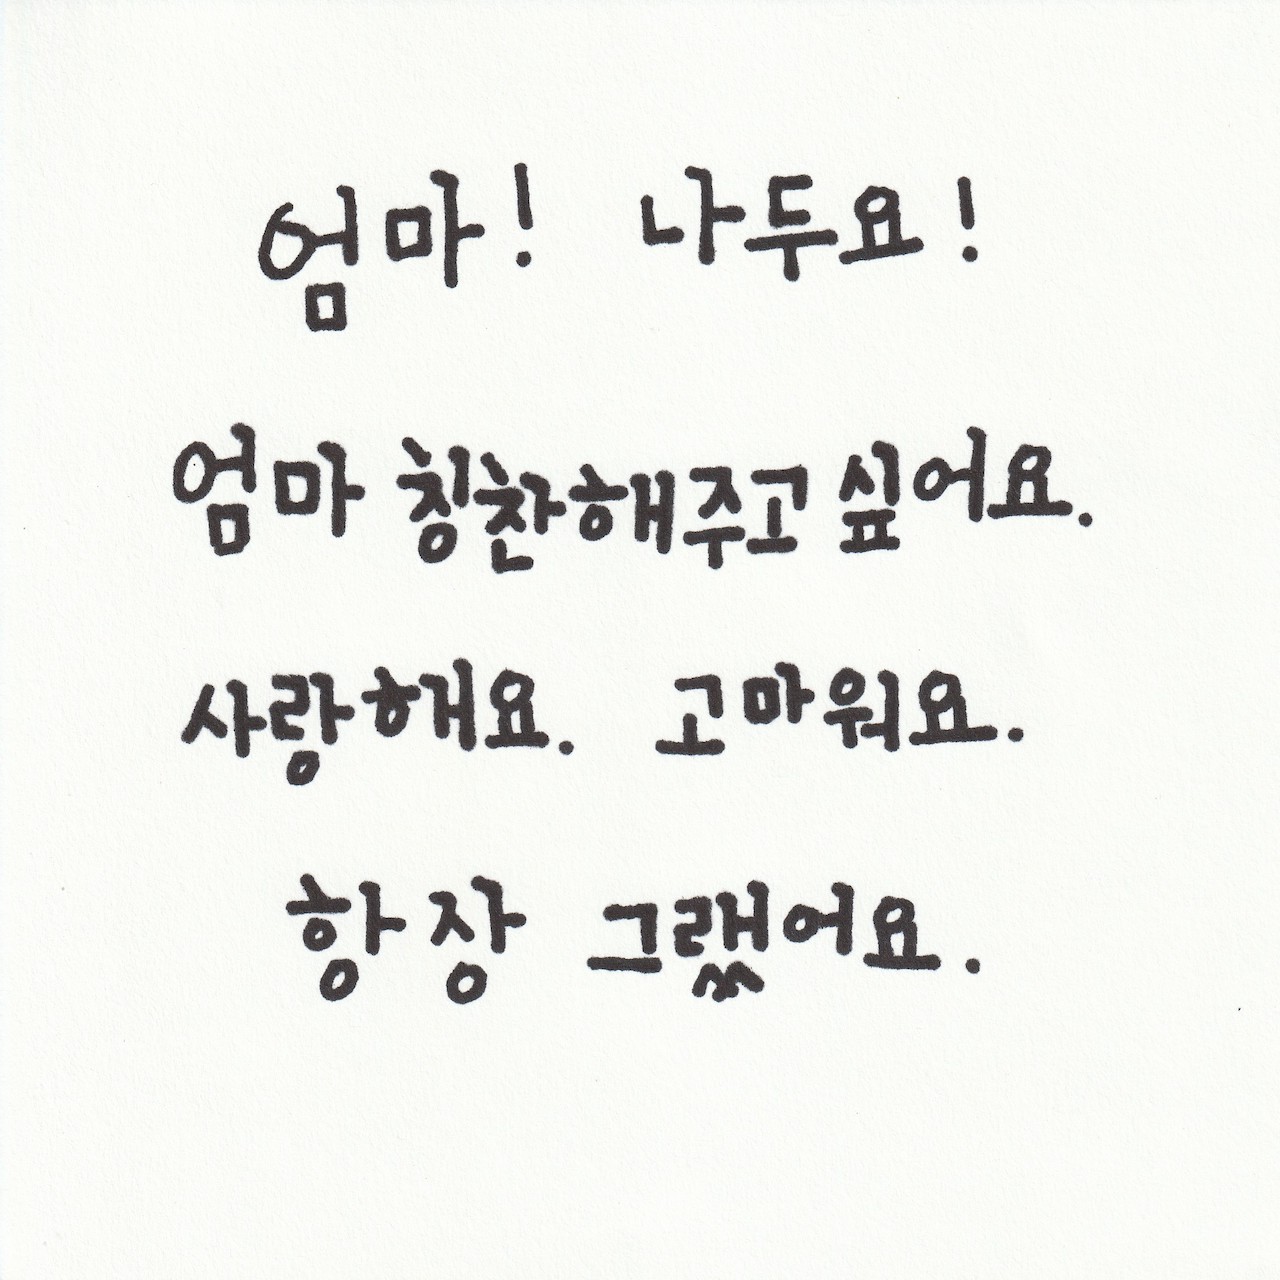 엄마! 나두요!
엄마 칭찬해주고 싶어요.
사랑해요. 고마워요.
항장 그랬어요.